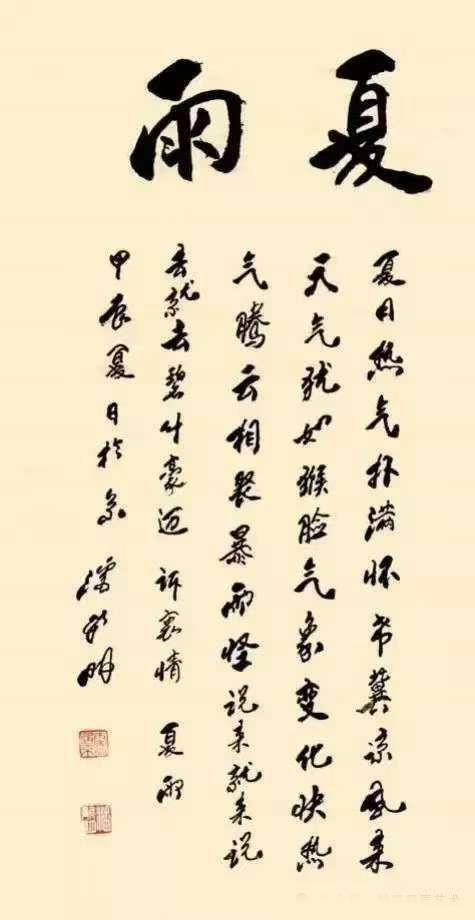 夏雨
夏日热气扑满怀希冀凉风来
天气犹如猴脸气象变化快热
气腾云相聚暴雨怪说来就来说
去就去碧叶豪迈 诉衷情 夏雨
甲辰夏日於京